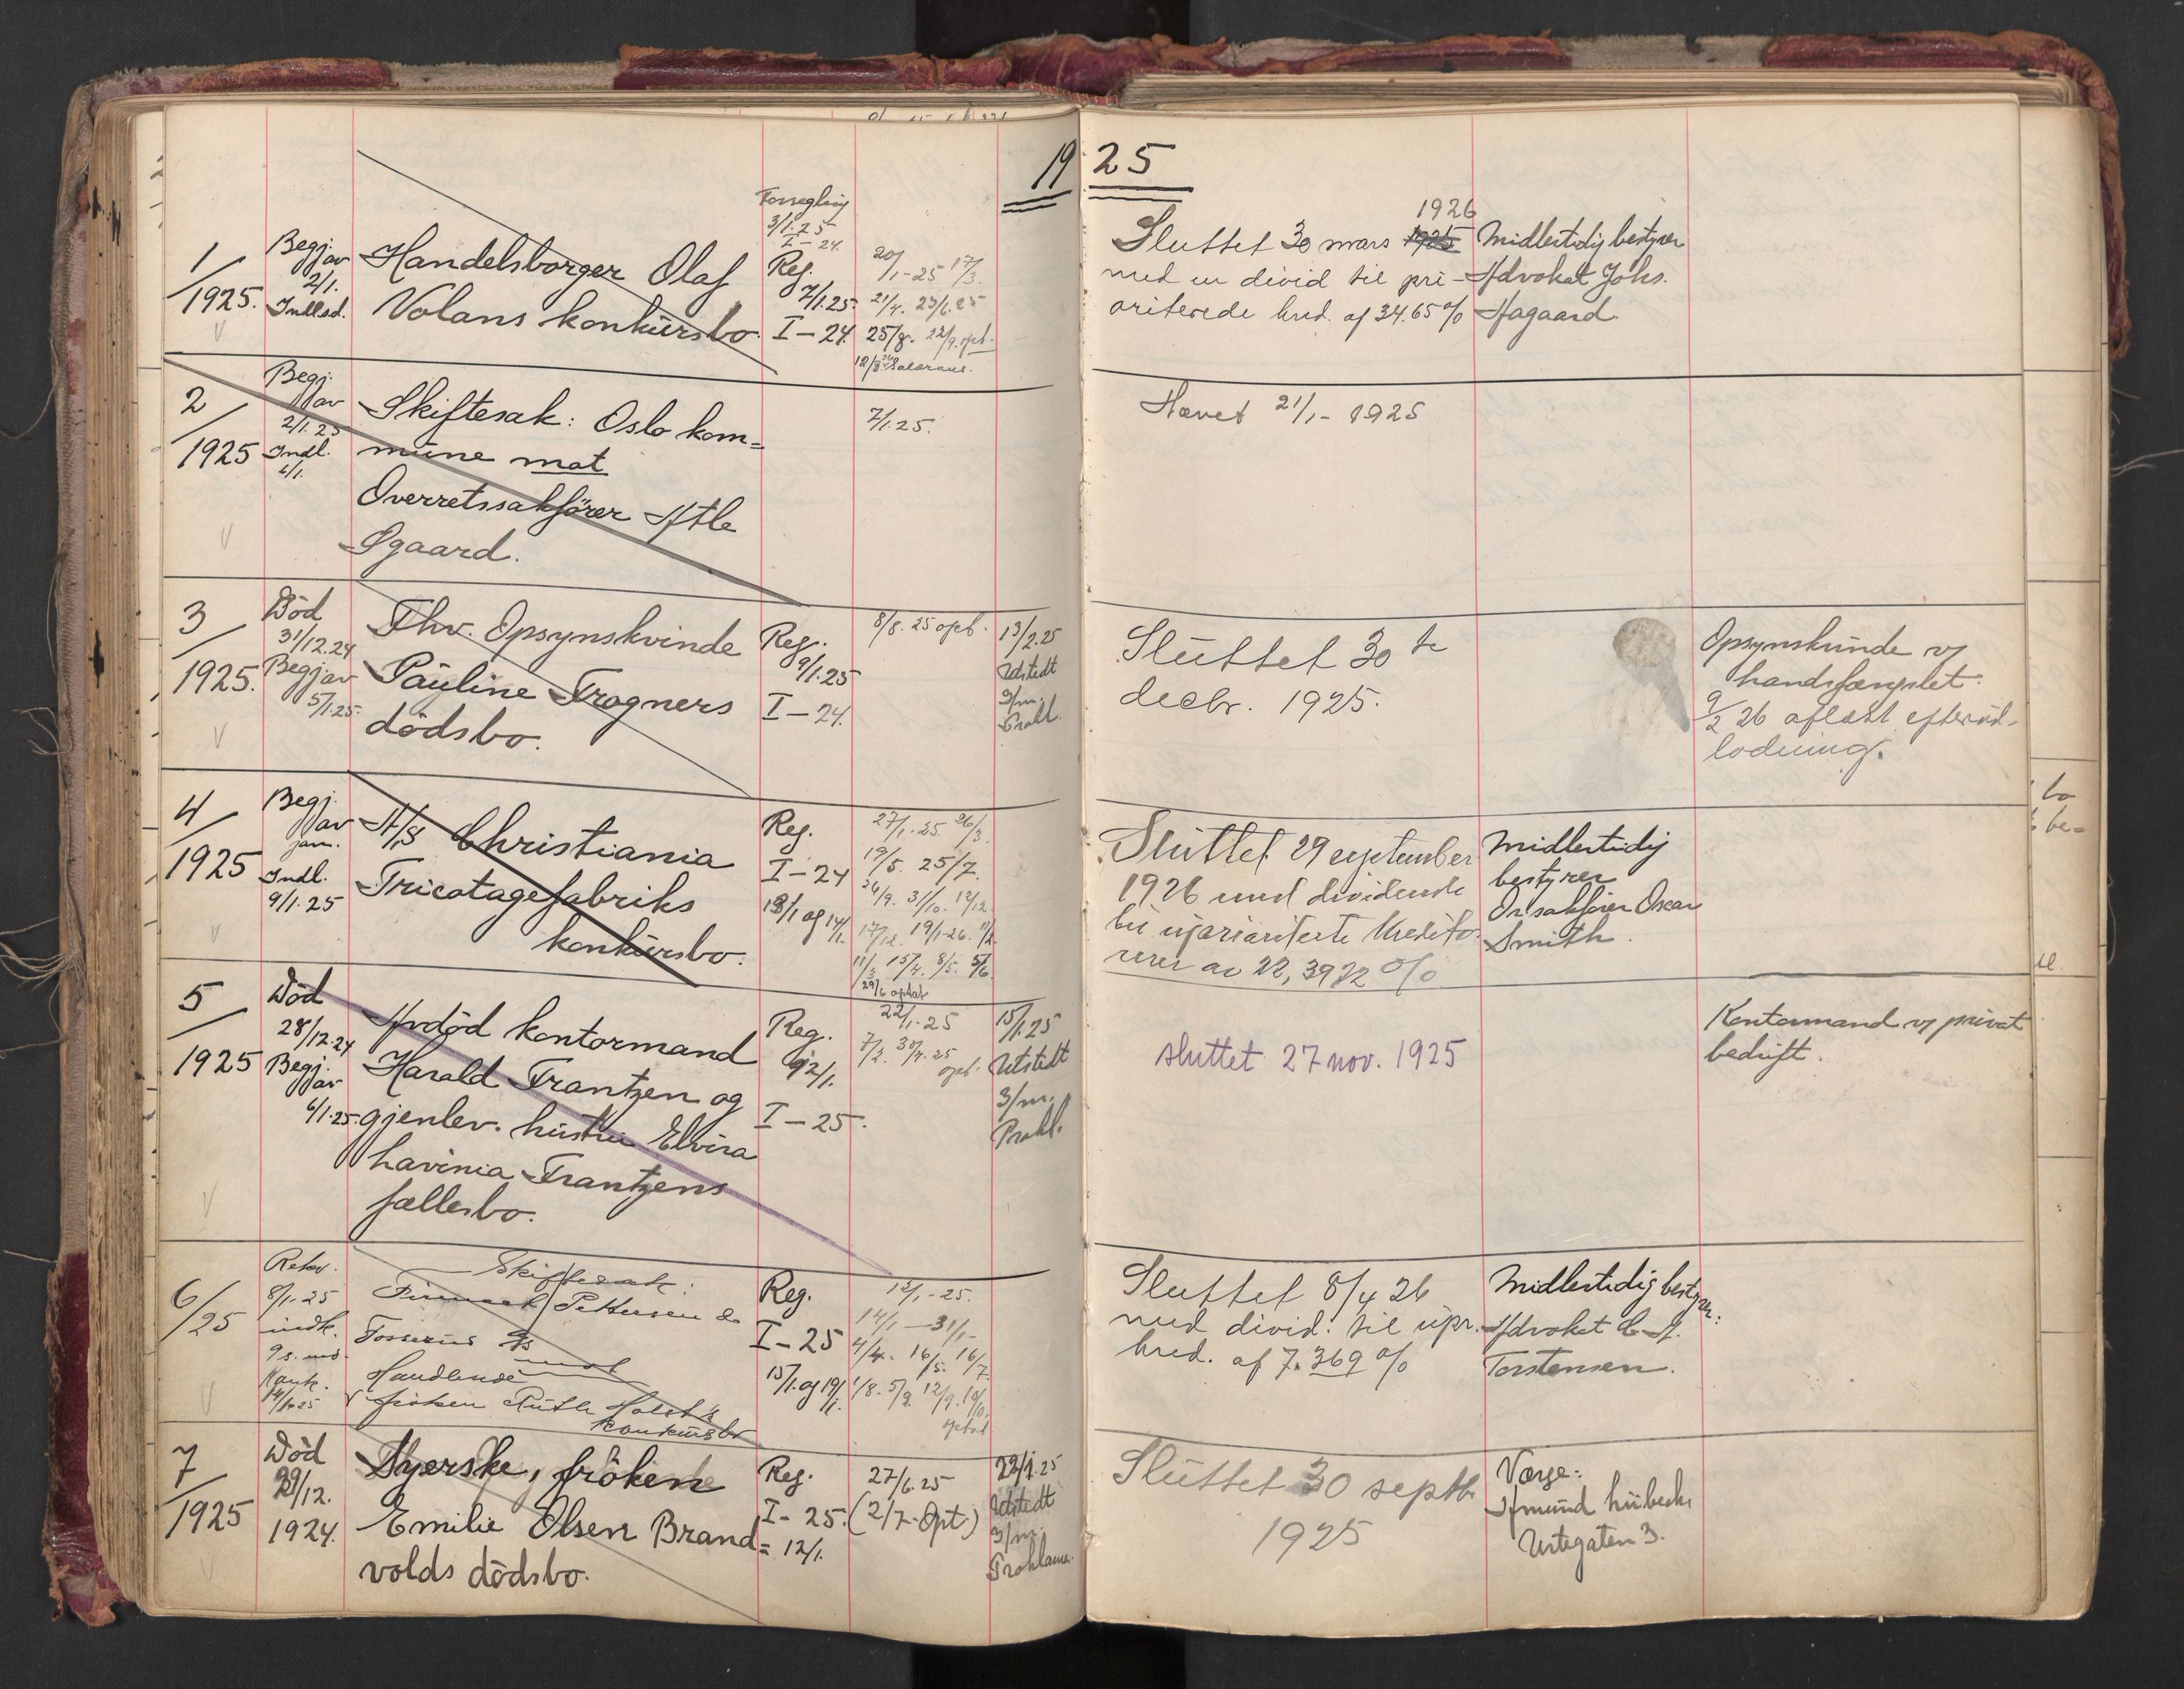 1925
1/1925.
Begj. av
2/1.
Indled.
Handelsborger Olaf
Volans konkursbo.
Forsegling
3/1.25
I-24.
Reg.
7/1.25.
I-24.
20/1-25 17/3.
21/4. 23/6.25
25/8. 22/9. opt.
Sluttet 30 mars 1926
med en divid til pri-
oriterede kred. af 34.65%
Midlertidig bestyrer
Advokat Johs.
Aagaard.
2/1925
Begj. av
2/1.25
Indl.
6/1.
Skiftesak: Oslo kom=
mune mot
Overretssakförer Atle
Øgaard.
7/1.25.
Hævet 21/1-1925
3/1925.
Död
31/12.24
Begj av
5/1.25.
Fhv. Opsynskvinde
Pauline Frogners
dödsbo.
Reg.
9/1.25
I-24.
8/8.25 opt.
13/2.25
Utstedt
3/m.
Prokl.
Sluttet 30te
decbr. 1925.
Opsynskvinde v/
handsfængslet.
9/2 26 aflæst efterud-
lodning.
4/1925
Begj. av
jan.
Indl.
9/1.25
A/S Christiania
Tricotagefabriks
konkursbo.
Reg.
I-24
13/1 og 14/1.
27/1.25. 26/3.
19/5. 25/7.
26/9. 31/10. 12/12.
17/12. 19/1-26.
11/3 15/4. 8/5. 5/6
29/6 optat
Sluttet 29 september
1926 med dividende
til upriviriterte Kredito-
rerer av 22,3972%
Midlertidig
bestyrer
Or.sakförer Oscar
Smith.
5/1925
Död
28/12.24
Begj. av
6/1.25.
Avdöd kontormand
Harald Frantzen og
gjenlev. hustru Elvira
Lavinia Frantzens
fællesbo.
Reg.
12/1.
I-25.
22/1-25
7/2. 30/4.25
opt.
15/1.25
Utstedt
3/m.
Prokl.
sluttet 27 nov. 1925
Kontormand v/ privat
bedrift.
6/25
8/1-25
indk.
9 s. md.
Konk.
14/1-25
Skiftesak:
Pettersen &
mot
Handlende
fröken Ruth Holst's
konkursbo
Reg.
I-25
15/1. og 19/1.
12/1-25.
14/1-31/1-
4/4. 16/5. 16/7.
1/8. 5/9. 12/9. 10/10.
optat
Sluttet 8/4 26
med divid. til upr.
kred. af 7.369%
Midlertidig bestyrer:
Advokat C. A.
Torstensen.
7/1925
Död
29/12.
1924.
Syerske, fröken
Emilie Olsen Brand=
volds dödsbo.
Reg.
I-25.
12/1.
27/6.25
(2/7-Opt.)
22/1.25
Utstedt
3/m.
Proklama.
Sluttet 30 septbr
1925
Værge:
Amund Lübeck
Urtegaten 3.